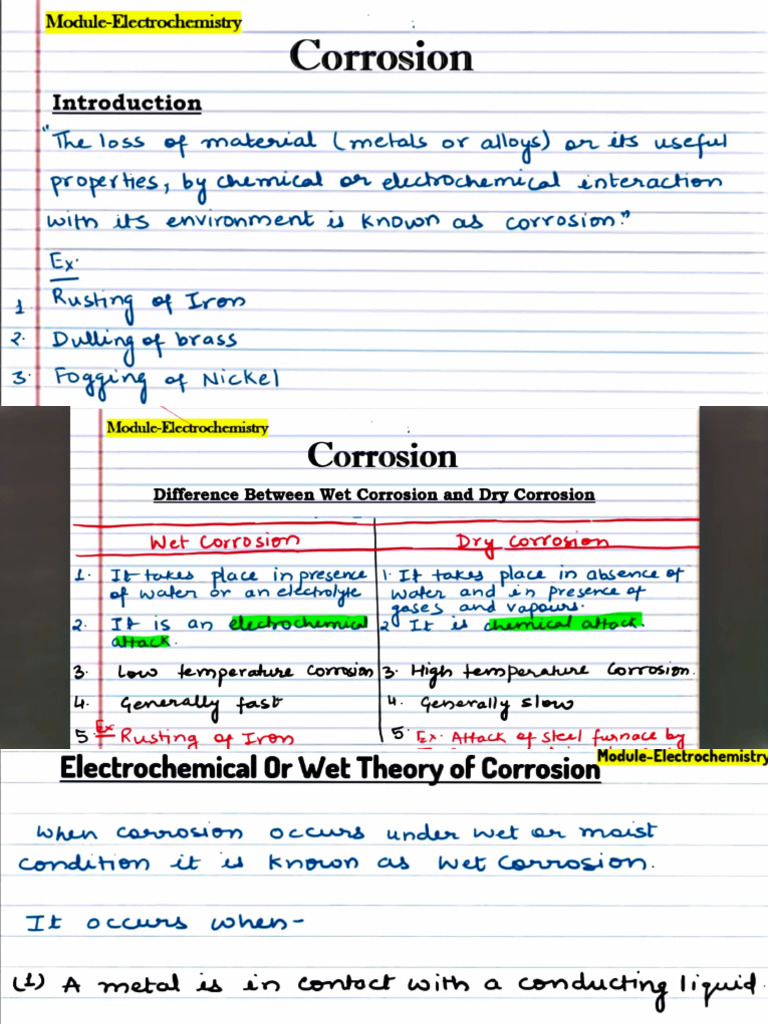 Module-Electrochemistry
Corrosion
Introduction
"The loss of material (metals or alloys) or its useful
properties, by chemical or electrochemical interaction
with its environment is known as corrosion."
Ex:
1. Rusting of Iron
2. Dulling of brass
3. Fogging of Nickel
Module-Electrochemistry
Corrosion
Difference Between Wet Corrosion and Dry Corrosion
Wet Corrosion
1. It takes place in presence
of water or an electrolyte
2. It is an electrochemical
attack.
3. Low temperature corrosion
4. Generally fast
5. Ex Rusting of Iron
Dry corrosion
1. It takes place in absence of
water and in presence of
gases and vapours.
2 It is chemical attack.
3. High temperature corrosion.
4. Generally slow
5. Ex. Attack of steel furnace by
Electrochemical Or Wet Theory of Corrosion
Module-Electrochemistry
when corrosion occurs under wet or moist
condition it is known as wet corrosion.
It occurs when-
(1) A metal is in contact with a conducting liquid.